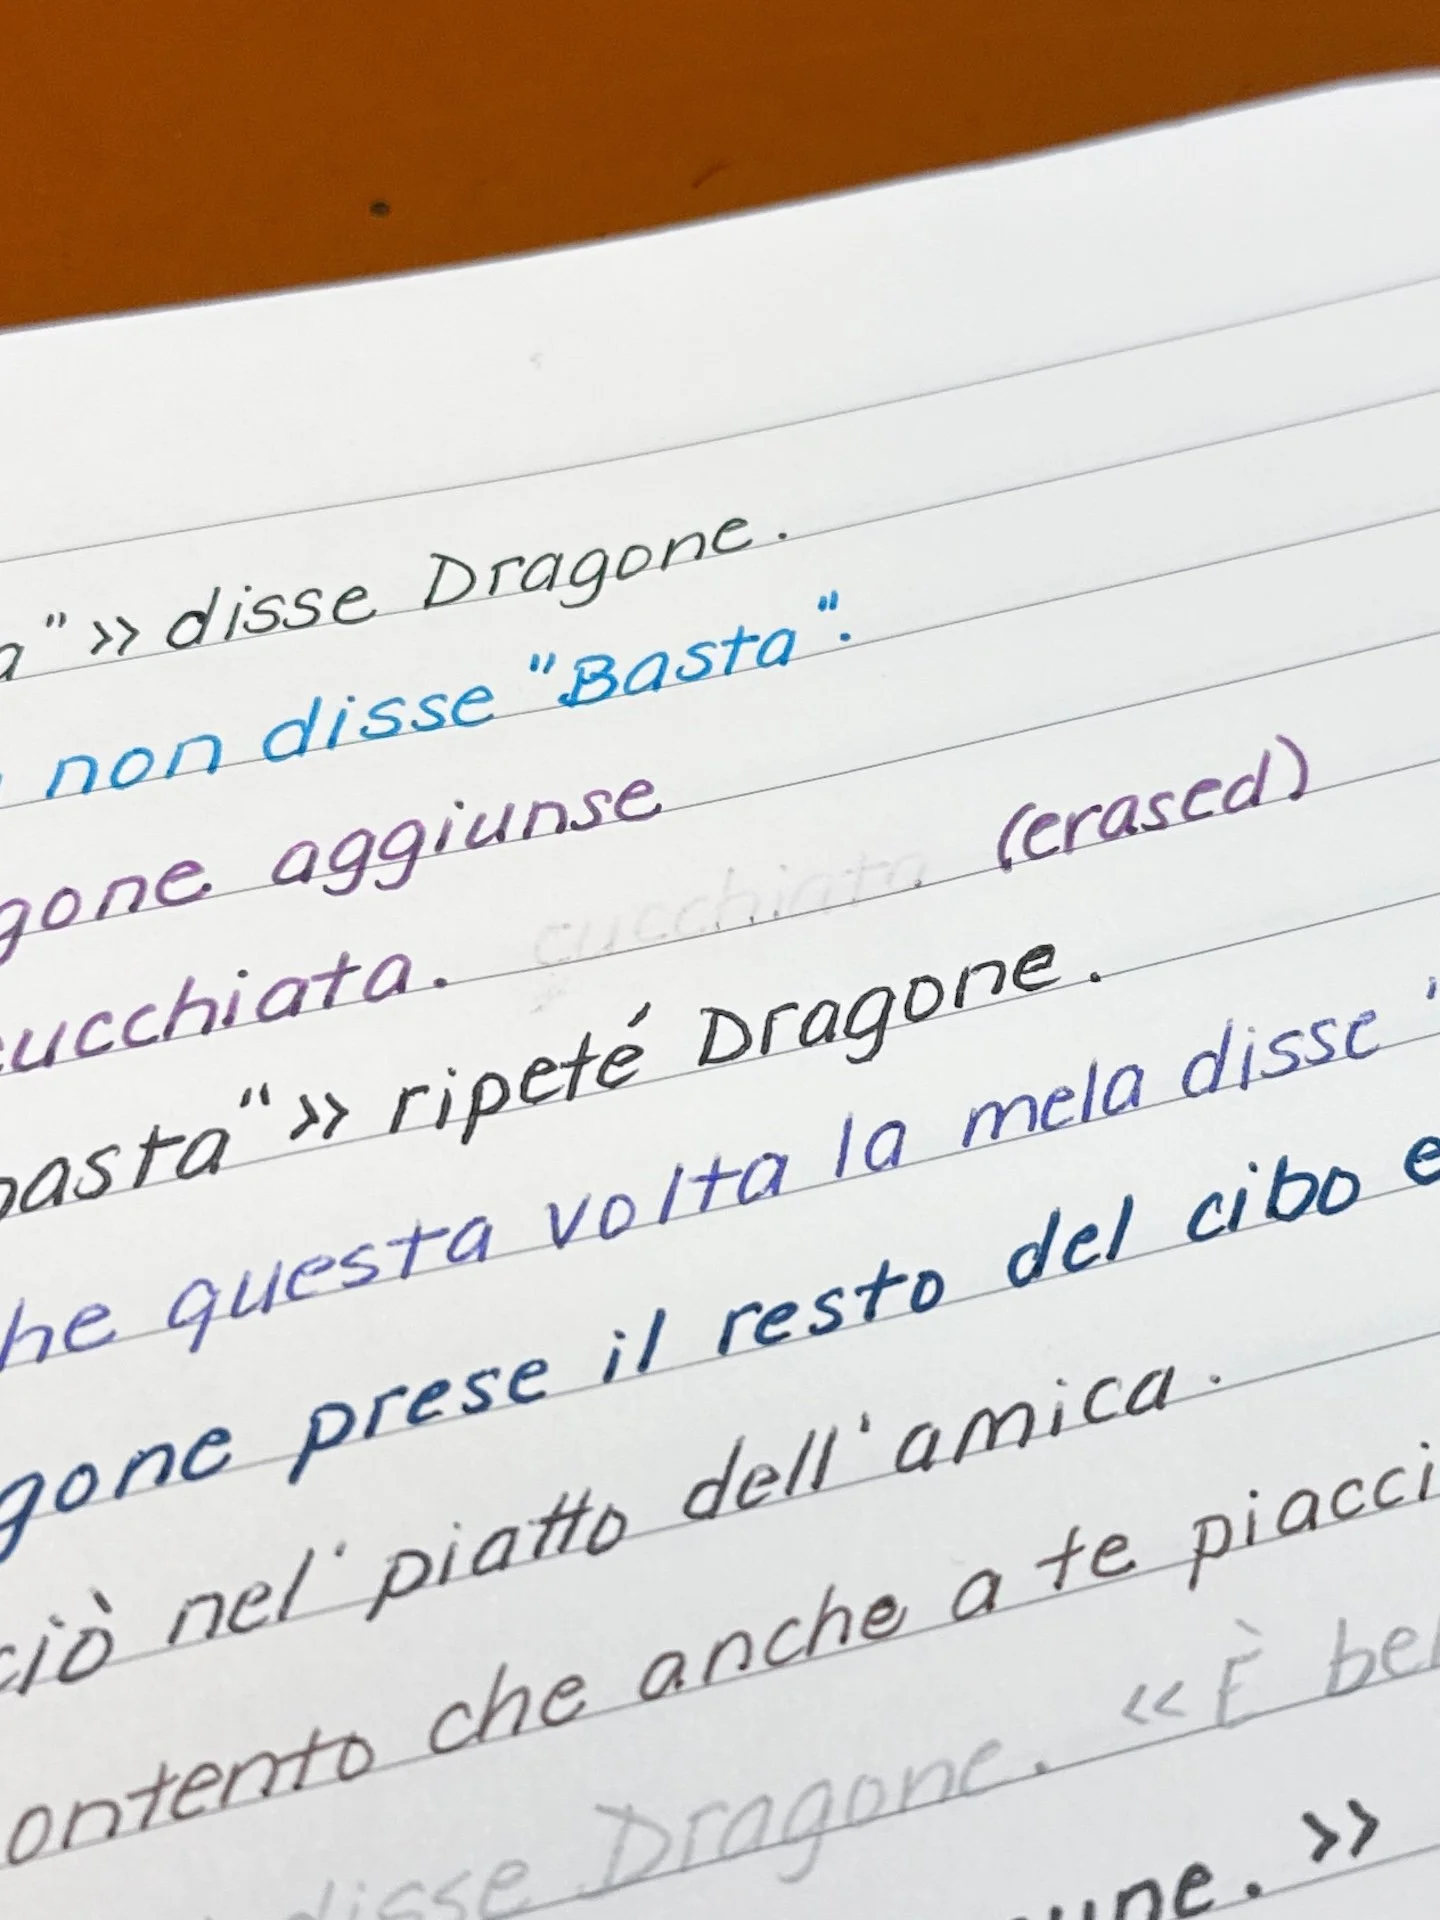 a"» disse Dragone.
non disse "Basta".
gone aggiunse
cucchiata. cucchiata (erased)
basta"» ripeté Dragone.
he questa volta la mela disse "
gone prese il resto del cibo e
ciò nel' piatto dell'amica.
ontento che anche a te piacci
disse Dragone. «È bel
une. »